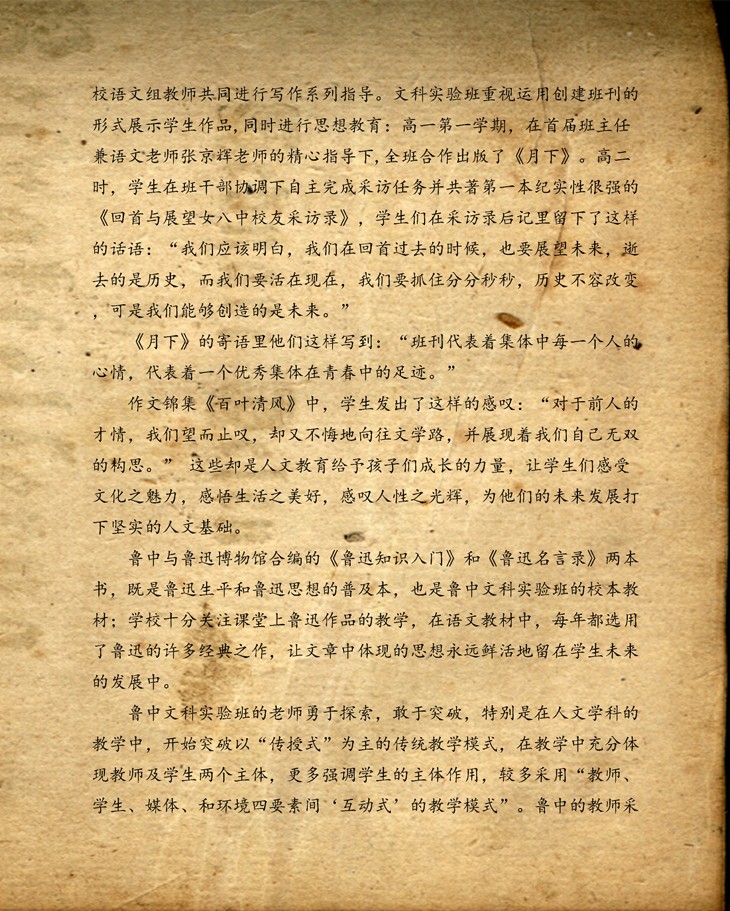 校语文组教师共同进行写作系列指导。文科实验班重视运用创建班刊的
形式展示学生作品,同时进行思想教育：高一第一学期，在首届班主任
兼语文老师张京辉老师的精心指导下,全班合作出版了《月下》。高二
时，学生在班干部协调下自主完成采访任务并共著第一本纪实性很强的
《回首与展望女八中校友采访录》，学生们在采访录后记里留下了这样
的话语：“我们应该明白，我们在回首过去的时候，也要展望未来，逝
去的是历史，而我们要活在现在，我们要抓住分分秒秒，历史不容改变
，可是我们能够创造的是未来。”
《月下》的寄语里他们这样写到：“班刊代表着集体中每一个人的
心情，代表着一个优秀集体在青春中的足迹。”
作文锦集《百叶清风》中，学生发出了这样的感叹：“对于前人的
才情，我们望而止叹，却又不悔地向往文学路，并展现着我们自己无双
的构思。” 这些却是人文教育给予孩子们成长的力量，让学生们感受
文化之魅力，感悟生活之美好，感叹人性之光辉，为他们的未来发展打
下坚实的人文基础。
鲁中与鲁迅博物馆合编的《鲁迅知识入门》和《鲁迅名言录》两本
书，既是鲁迅生平和鲁迅思想的普及本，也是鲁中文科实验班的校本教
材；学校十分关注课堂上鲁迅作品的教学，在语文教材中，每年都选用
了鲁迅的许多经典之作，让文章中体现的思想永远鲜活地留在学生未来
的发展中。
鲁中文科实验班的老师勇于探索，敢于突破，特别是在人文学科的
教学中，开始突破以“传授式”为主的传统教学模式，在教学中充分体
现教师及学生两个主体，更多强调学生的主体作用，较多采用“教师、
学生、媒体、和环境四要素间‘互动式’的教学模式”。鲁中的教师采